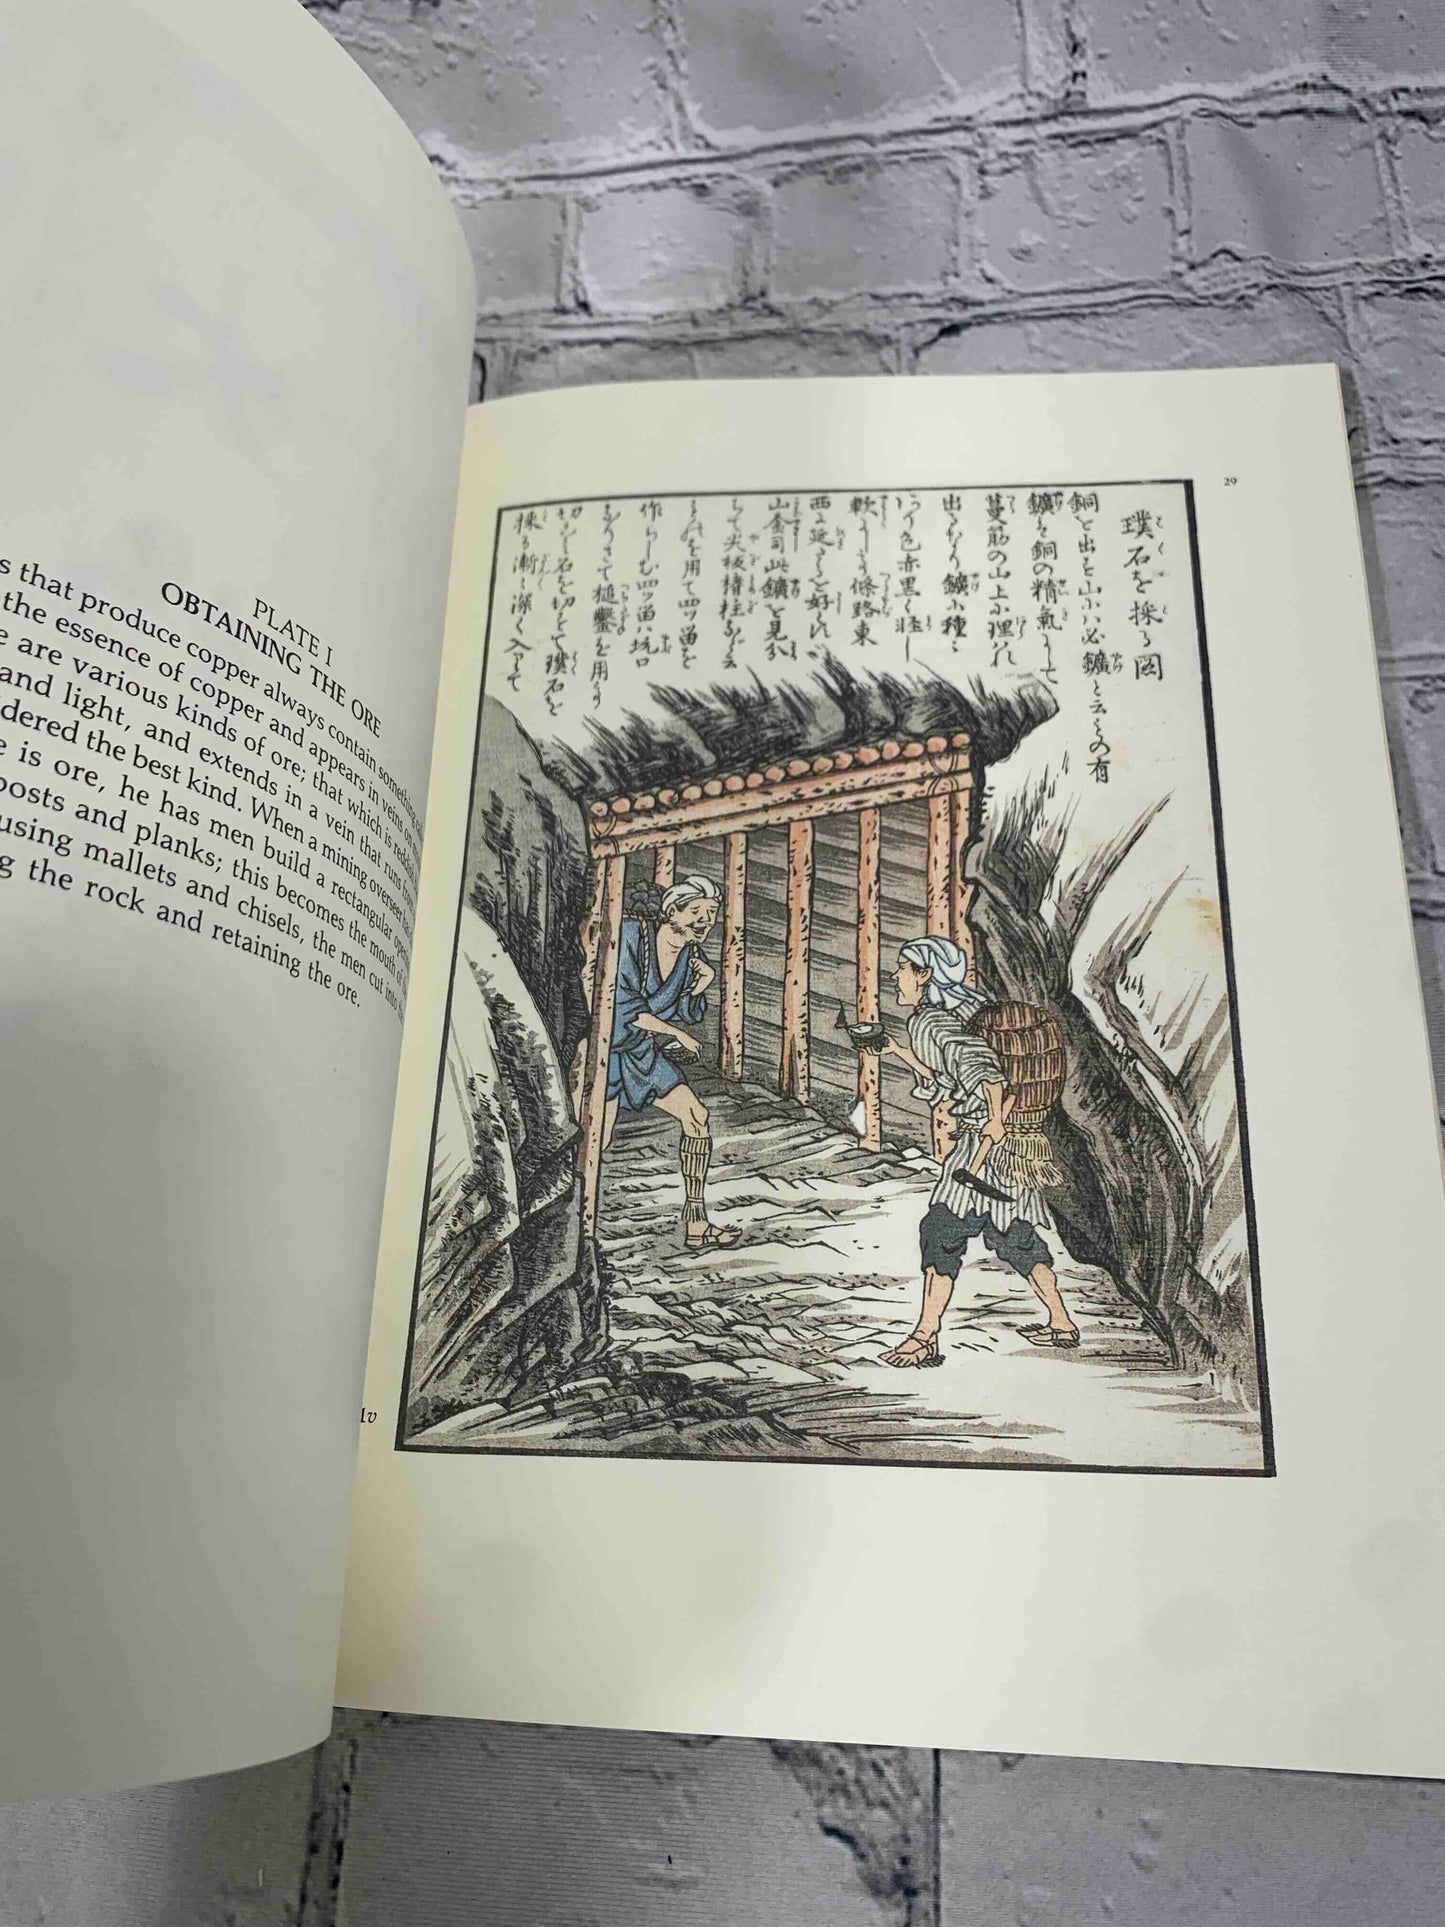 PLATE I
OBTAINING THE ORE
s that produce copper always contain something
the essence of copper and appears in veins on
e are various kinds of ore; that which is reddish
and light, and extends in a vein that runs from
dered the best kind. When a mining overseer has
e is ore, he has men build a rectangular
posts and planks; this becomes the mouth of
using mallets and chisels, the men cut into
g the rock and retaining the ore.
1v
29
璞石を採る図
銅を出を山ハ必鑛と云もの有
鑛ハ銅の精氣にて
蔓筋の山上に埋れ
出るなり鑛に種々
あり色赤黒く
軟らかに條路東
西に延たるを好と
山金司此鑛を見分
して尖板持柱など云
ものを用て四ツ留を
作らしむ四ツ留ハ坑口
なりさて槌鑿を用ひ
石を切とて璞石を
採る漸々深く入りて